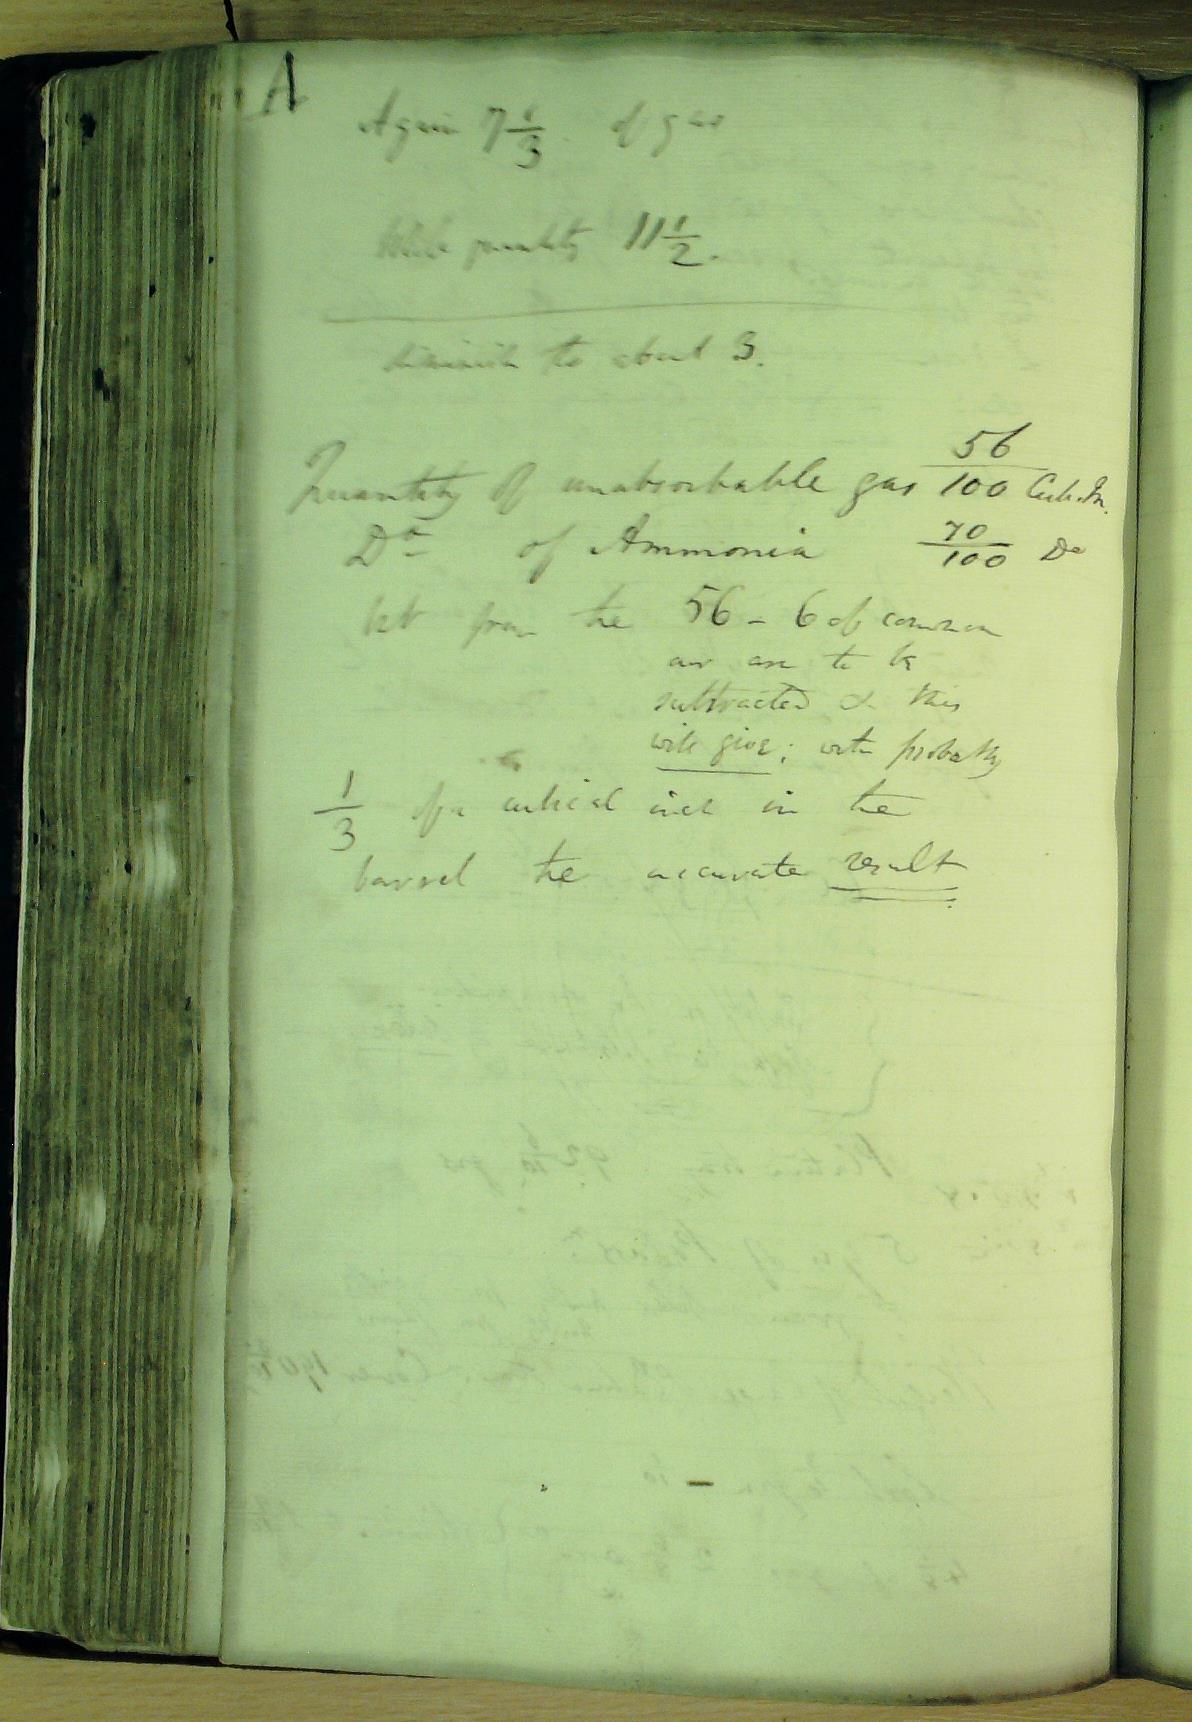 A
Again 7 1/3 of gas
Whole quantity 11 1/2.
diminish to about 3.
Quantity of unabsorbable gas 56/100 Cub. In.
Do of Ammonia 70/100 Do
but from the 56 - 6 of common
air are to be
subtracted & this
will give; with probably
1/3 of a cubical inch in the
barrel the accurate result